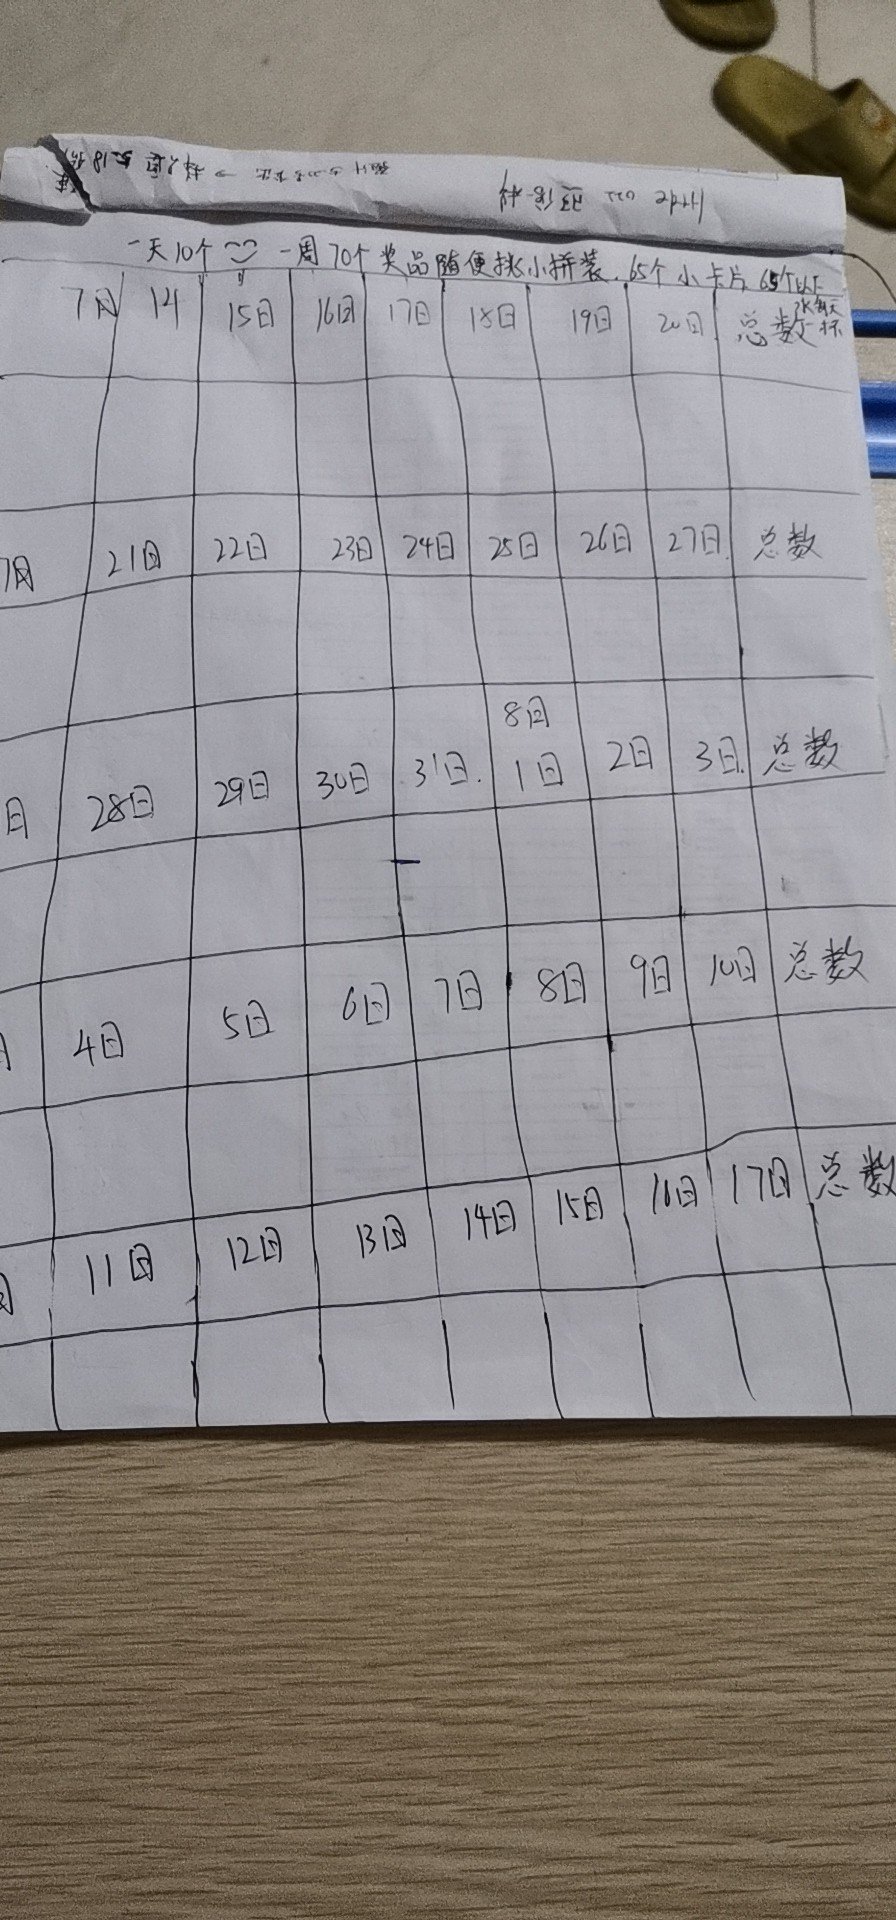 一天10个 一周70个奖品随便挑小拼装.65个小卡片 65个以下
7月 14 15日 16日 17日 18日 19日 20日 总数
7月 21日 22日 23日 24日 25日 26日 27日 总数
8日
28日 29日 30日 31日. 1日 2日 3日. 总数
4日 5日 6日 7日 8日 9日 10日 总数
11日 12日 13日 14日 15日 16日 17日 总数